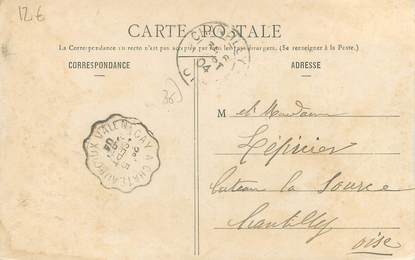 12 €
CARTE POSTALE
La Correspondance au recto n'est pas acceptée par tous les pays étrangers. (Se renseigner à la Poste.)
CORRESPONDANCE
ADRESSE
04
36
VALENÇAY A CHATEAUROUX
SEPT
M et Madame
Lépicier
la Source
Chantilly
Oise